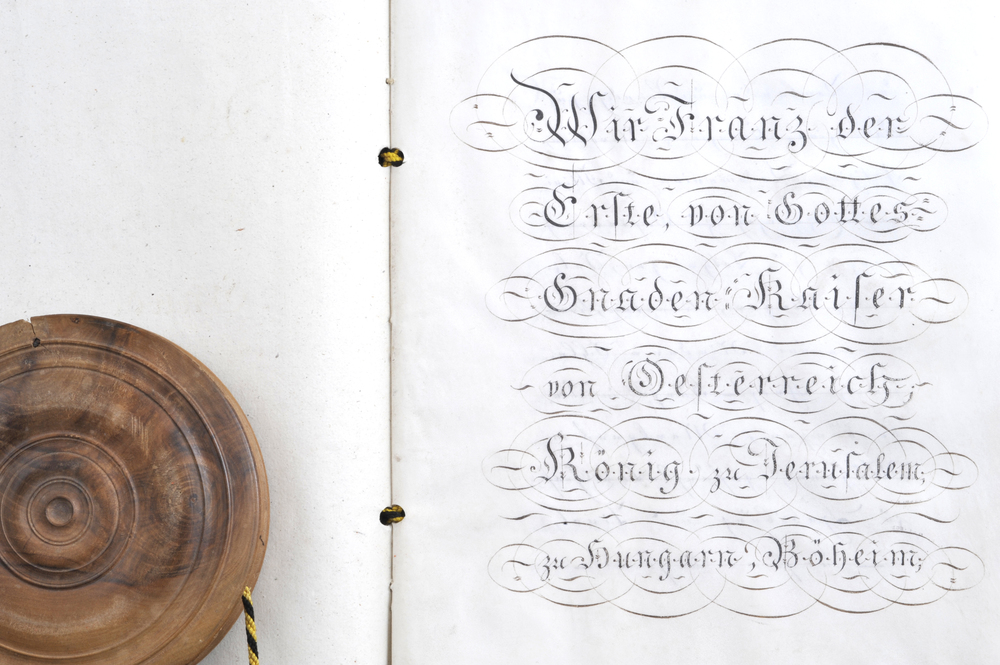 Wir Franz der
Erſte, von Gottes
Gnaden Kaiſer
von Oeſterreich,
König zu Jeruſalem,
zu Hungarn, Böheim,